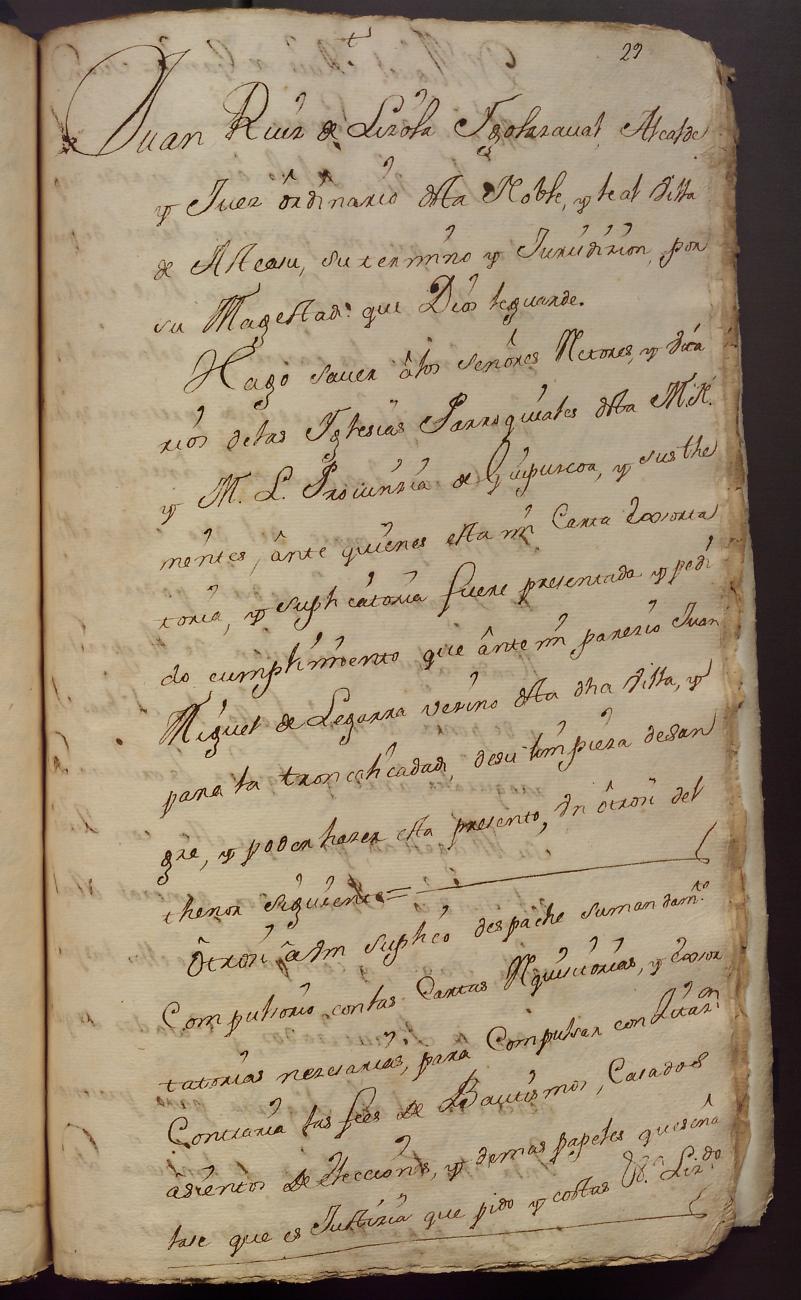 29
Juan Ruiz de Lizola Ygolarraval, Alcalde
y Juez ôrdinario desta Noble, y leal Villa
de Asteasu, su termino y Jurisdizion, por
su Magestad: que Dios leguarde.
Hago sauer âlos señores Retores, y Vica
rios delas Yglesias Parroquiales desta M. N.
y M. L. Prouinzia de Guipuzcoa, y sus the
nientes, ânte quienes esta mi Carta Exsorta
toria, y suplicatoria fuere presentada y pedi
do cumplimiento que ânte mi parezio Juan
Miguel de Legarra vezino desta dha Villa, y
para la troncalidad, desu limpieza desan
gre, y poder hazer esta presento, Vn ôtrosi del
thenor siguiente =
Ôtrosi â Vm suplico despache sumandam.to
Compulsorio conlas Cartas Requisitorias, y exsor
tatorias nezesarias, para Compulsar con Zitaz.on
Contraria las fees de Bautismos, Casados
asientos de elecciones, y demas papeles queseña
lase que es Justizia que pido y costas Liz.do